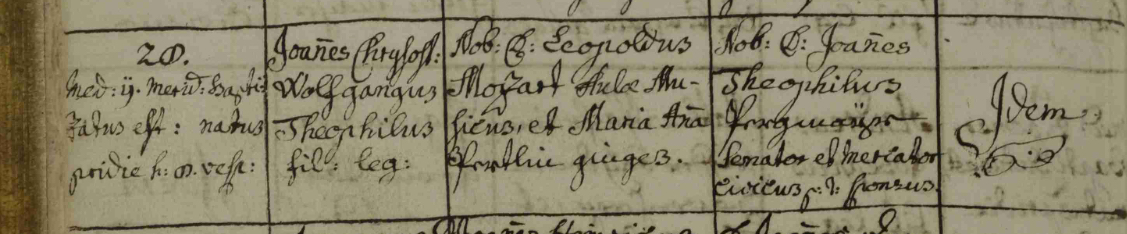 28.
med: ij. merid: baptizatus est : natus
pridie h: 8. vesp:
Joañes Chrysost:
Wolfgangus
Theophilus
fil: leg:
Nob: D: Leopoldus
Mozart Aulæ Mu-
sicus, et Maria Aña
Pertlin giuges.
Nob: D: Joañes
Theophilus
Pergmaÿr
Senator et Mercator
civicus p: t: sponsus.
Idem